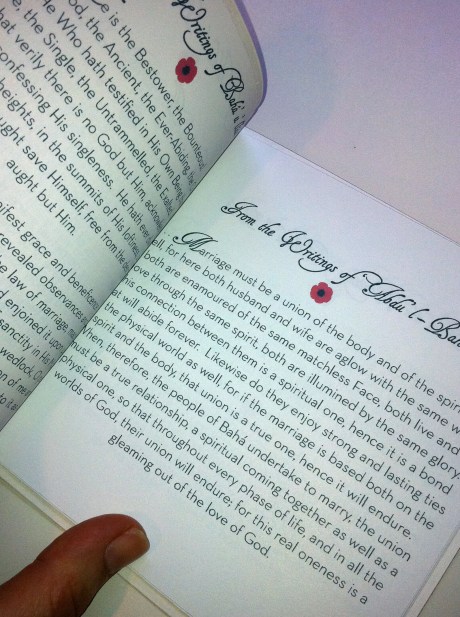 Writings of Bahá'
e is the Bestower, the Bounteous
od, the Ancient, the Ever-Abiding,
He Who hath testified in His Own Being
e, the Single, the Untrammelled, the Exalted
hat verily there is no God but Him,
onfessing His singleness. He hath ever
heights, in the summits of His loftiness
ught save Himself, free from the
aught but Him.
nifest grace and beneficence
revealed Observances
e law of marriage
d enjoined it upon
sanctity, in His
wedlock
From the Writings of 'Abdu'l-Bah
Marriage must be a union of the body and of the spiri
ell, for here both husband and wife are aglow with the same w
both are enamoured of the same matchless Face, both live and
ove through the same spirit, both are illumined by the same glory.
his connection between them is a spiritual one, hence it is a bond
at will abide forever. Likewise do they enjoy strong and lasting ties
the physical world as well, for if the marriage is based both on the
spirit and the body, that union is a true one, hence it will endure.
When, therefore, the people of Bahá undertake to marry, the union
must be a true relationship, a spiritual coming together as well as a
physical one, so that throughout every phase of life, and in all the
worlds of God, their union will endure; for this real oneness is a
gleaming out of the love of God.